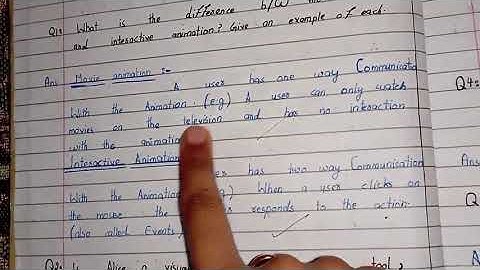 Q1: What is the difference b/w
and interactive animation? Give an example of each.
Ans Movie animation :-
A user has one way Communicatio
With the Animation. (e.g) A user can only watch
movies on the television and has no interaction
with the animation
Interactive Animation
has two way Communication
With the Animation g) When a user clicks on
the mouse the responds to the action.
(also called Events
Q2: Alice a visual tool
Q4:
Ans
Q